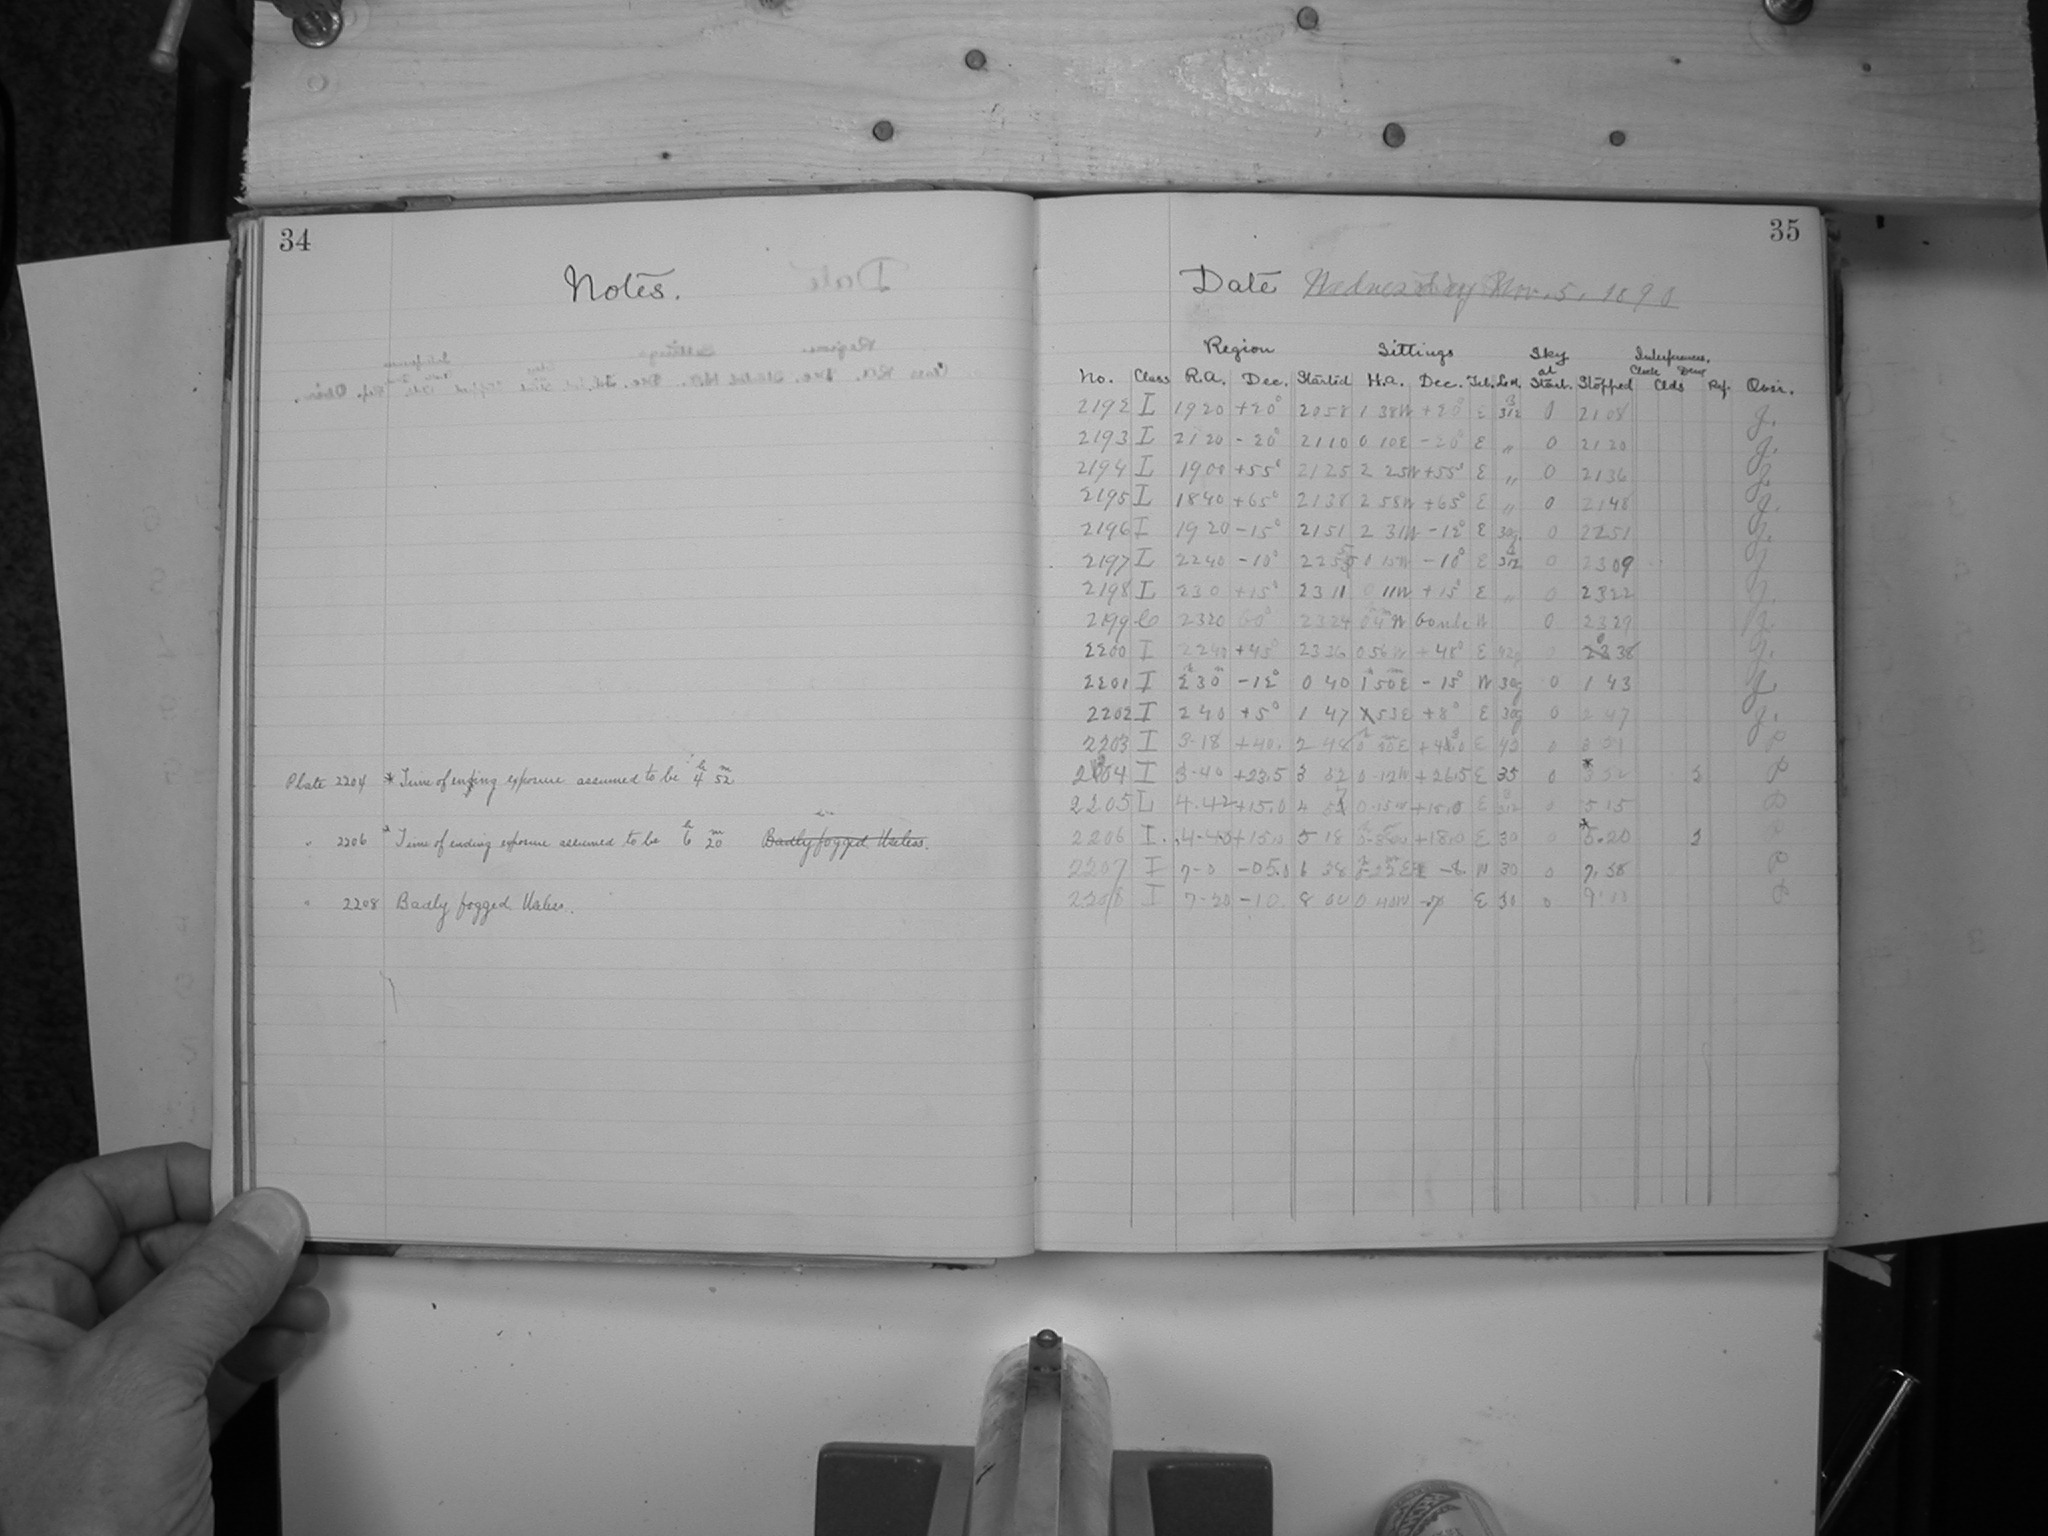 34
Notes.
Plate 2204 * Time of ending exposure assumed to be 4h 52m
" 2206 * Time of ending exposure assumed to be 6h 20m Badly fogged Useless.
" 2208 Badly fogged. Useless.
35
Date Wednesday Nov. 5, 1890
Region Sittings Sky at Start. Interferences.
No. Class R.A. Dec. Started H.A. Dec. Tel. Stopped Clock Clds Ref. Obsr.
2192 L 19 20 +20° 20 58 1 38W +20° E 312 0 21 08 J.
2193 L 21 20 -20° 21 10 0 10E -20° E " 0 21 20 J.
2194 L 19 00 +55° 21 25 2 25W +55° E " 0 21 36 J.
2195 L 18 40 +65° 21 38 2 58W +65° E " 0 21 48 J.
2196 I 19 20 -15° 21 51 2 31W -12° E 30g 0 22 51 J.
2197 L 22 40 -10° 22 55 0 15W -10° E 312 0 23 09 J.
2198 L 23 0 +15° 23 11 0 11W +15° E " 0 23 22 J.
2199 C 23 20 60° 23 24 04m W W 0 23 29
2200 I 22 40 +45° 23 36 0 56W +48° E 0 J.
2201 I 2h 30m -12° 0 40 1h 50mE -15° W 30g 0 1 43 J.
2202 I 2 40 +5° 1 47 53E +8° E 30g 0 2 47 J.
2203 I 3-18 +40. 2 48 E 0 3 51 P
2204 I 3-40 +23.5 3 52 0-12W +26.5 E 35 0 * 3 52 3 P
2205 L 4.42 +15.0 4 57 0-15W +15.0 E 312 0 5.15 P
2206 I. 4-40 +15.0 5 18 +18.0 E 30 0 * 5.20 3 P
2207 I 7-0 -05.0 6 38 -8. W 30 0 7.38 P
2208 I 7-20 -10. 8 00 0 40W -7 E 30 0 9.00 P